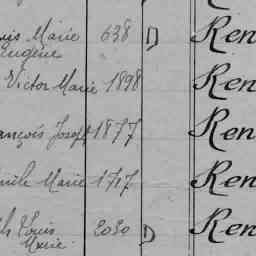 uis Marie 638 D Ren
Eugène
Victor Marie 1898 Ren
ançois Joseph 1877 Ren
mile Marie 1717 Ren
ph Louis 2030 D Ren
Marie